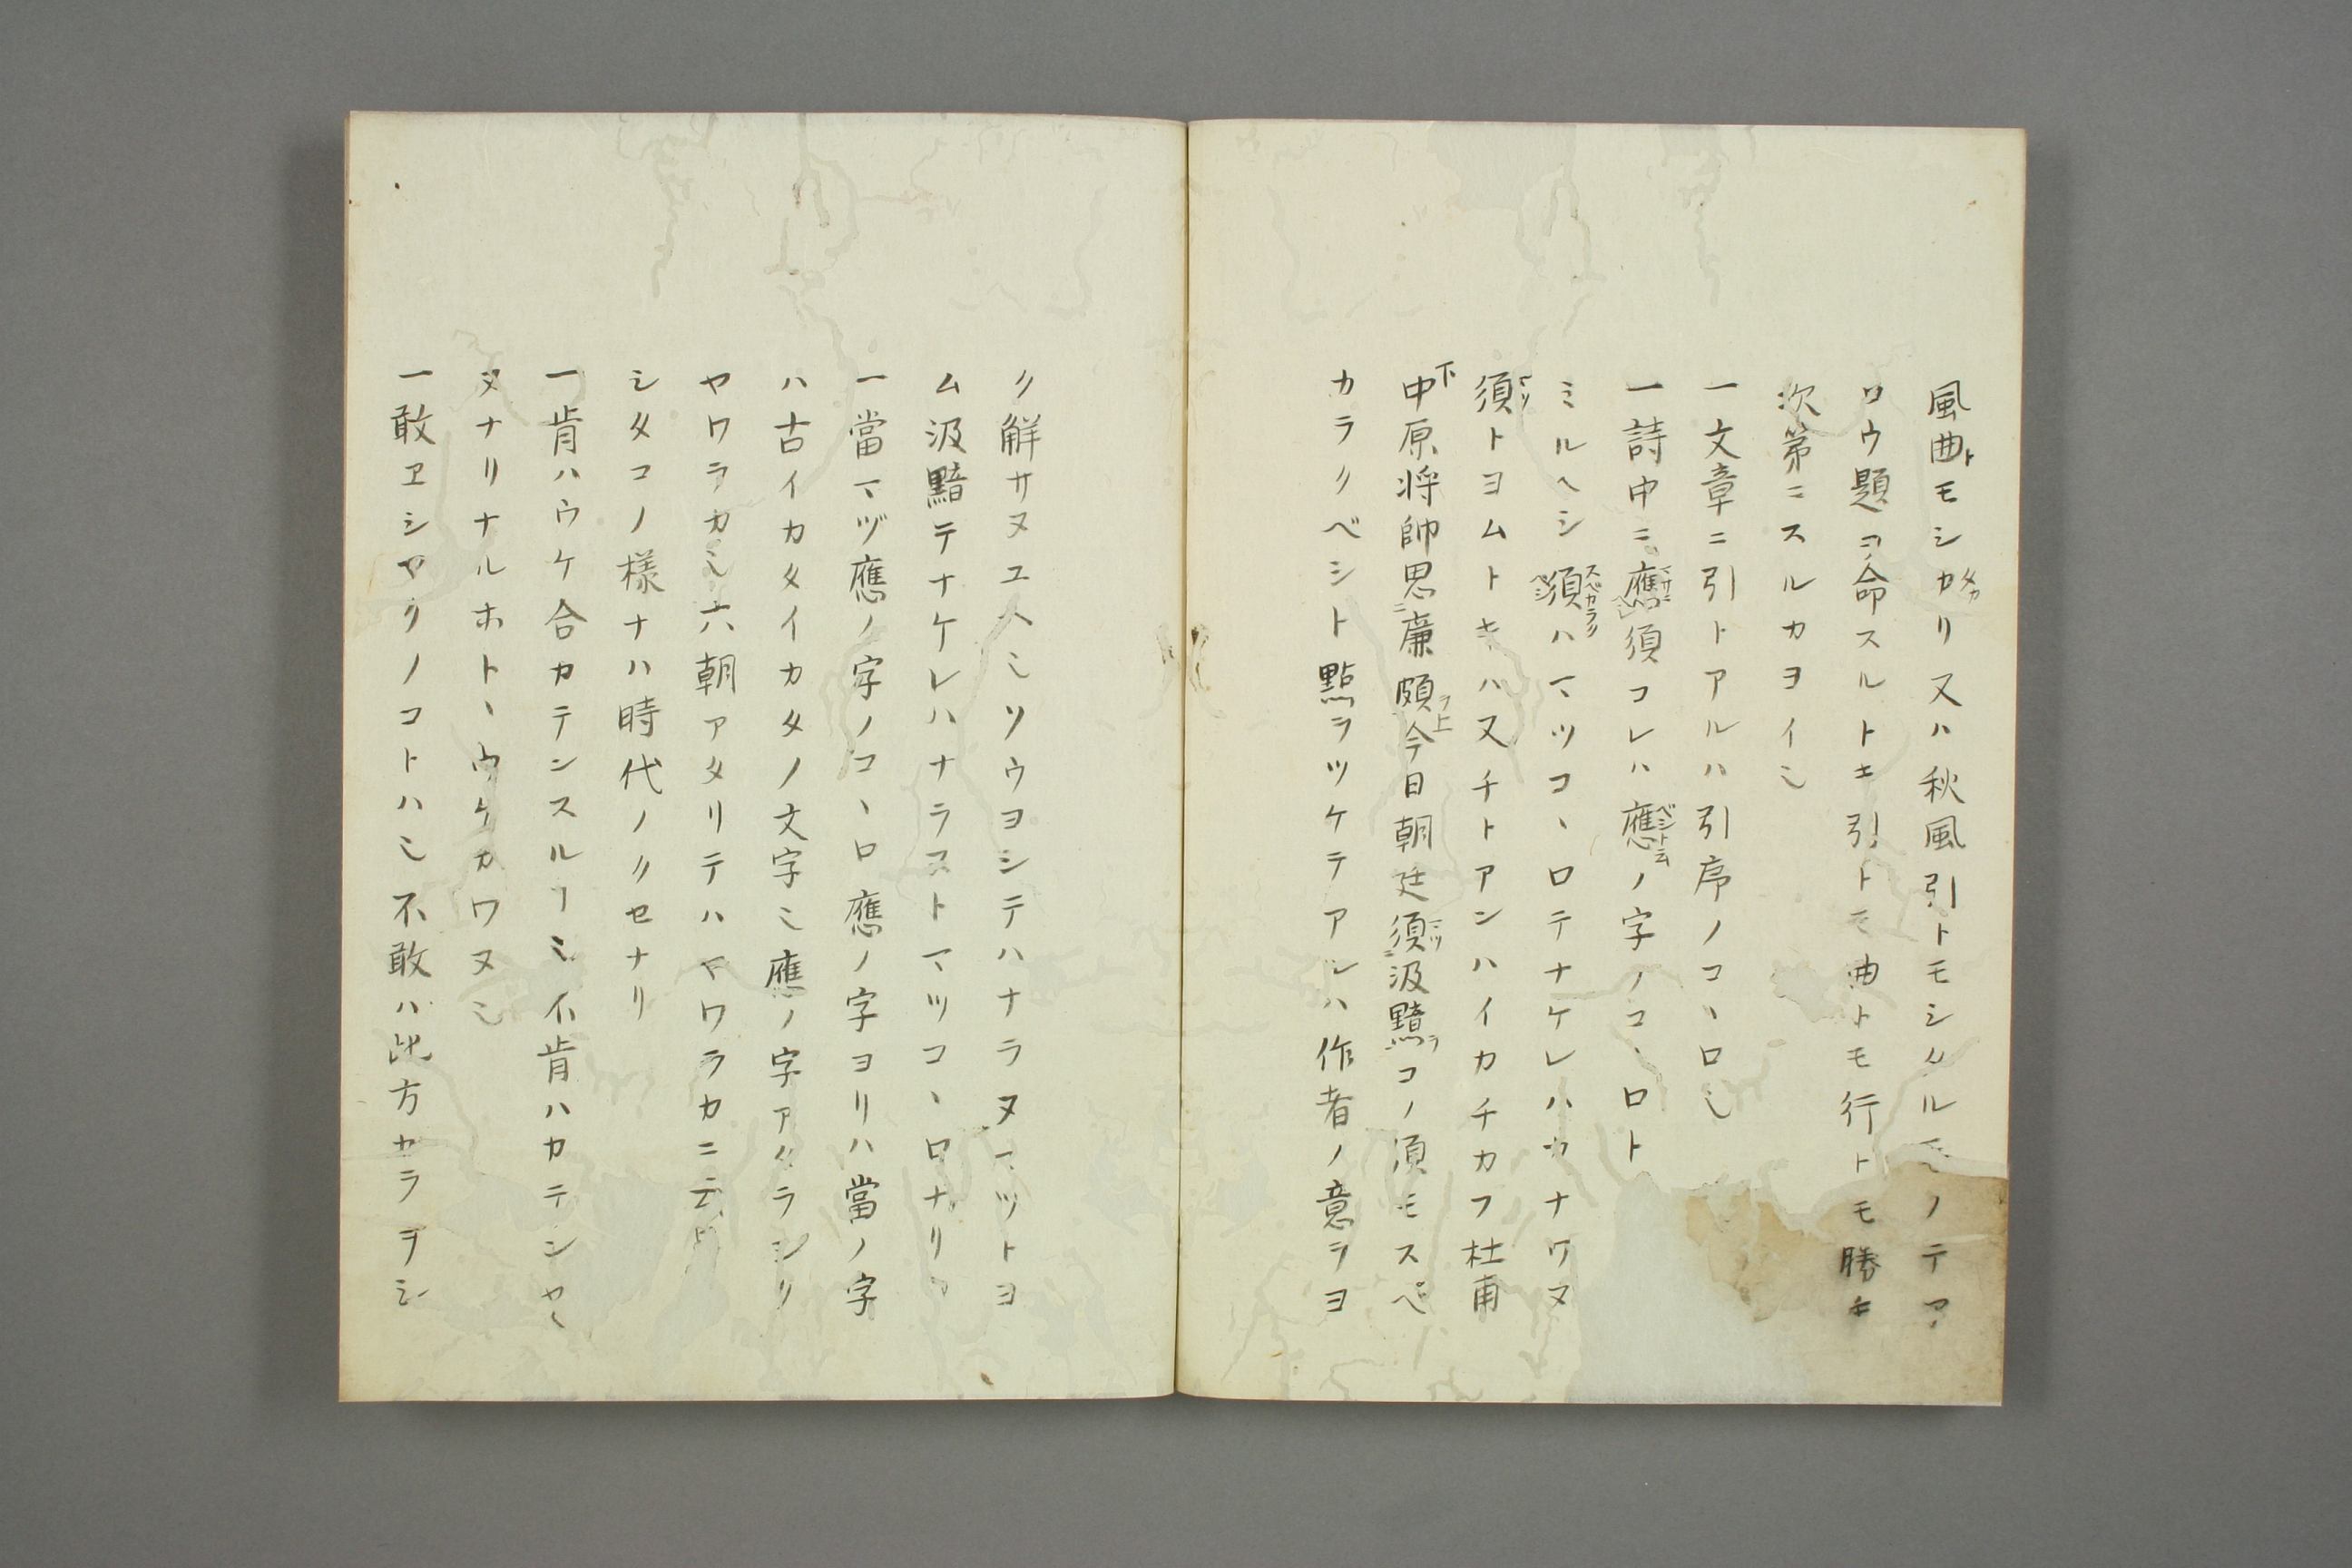 風曲トモシカリ又ハ秋風引トモシタルモノテア
ロウ題ヲ命スルトキ引トモ曲トモ行トモ勝キ
次第ニスルカヨイ〆
一文章ニ引トアルハ引序ノコヽロ〆
一詩中ニ應須コレハ應ノ字ノコヽロト
ミルヘシ須ハマツコヽロテナケレハカナワヌ
須トヨムトキハ又チトアンハイカチカフ杜甫
中原将帥思廉頗今日朝廷須汲黯コノ須モスベ
カラクベシト點ヲツケテアレハ作者ノ意ヲヨ
ク解サヌユヘ〆ソウヨシテハナラヌマツトヨ
ム汲黯テナケレハナラヌトマツコヽロナリ
一當マヅ應ノ字ノコヽロ應ノ字ヨリハ當ノ字
ハ古イカタイカタノ文字〆應ノ字アタラシク
ヤワラカ〆六朝アタリテハヤワラカニ云
シタコノ様ナハ時代ノクセナリ
一肯ハウケ合カテンスルヿ〆不肯ハカテンセ
ヌナリナルホトヽウケカワヌ〆
一敢ヱシヤクノコトハ〆不敢ハ此方カラヲシ